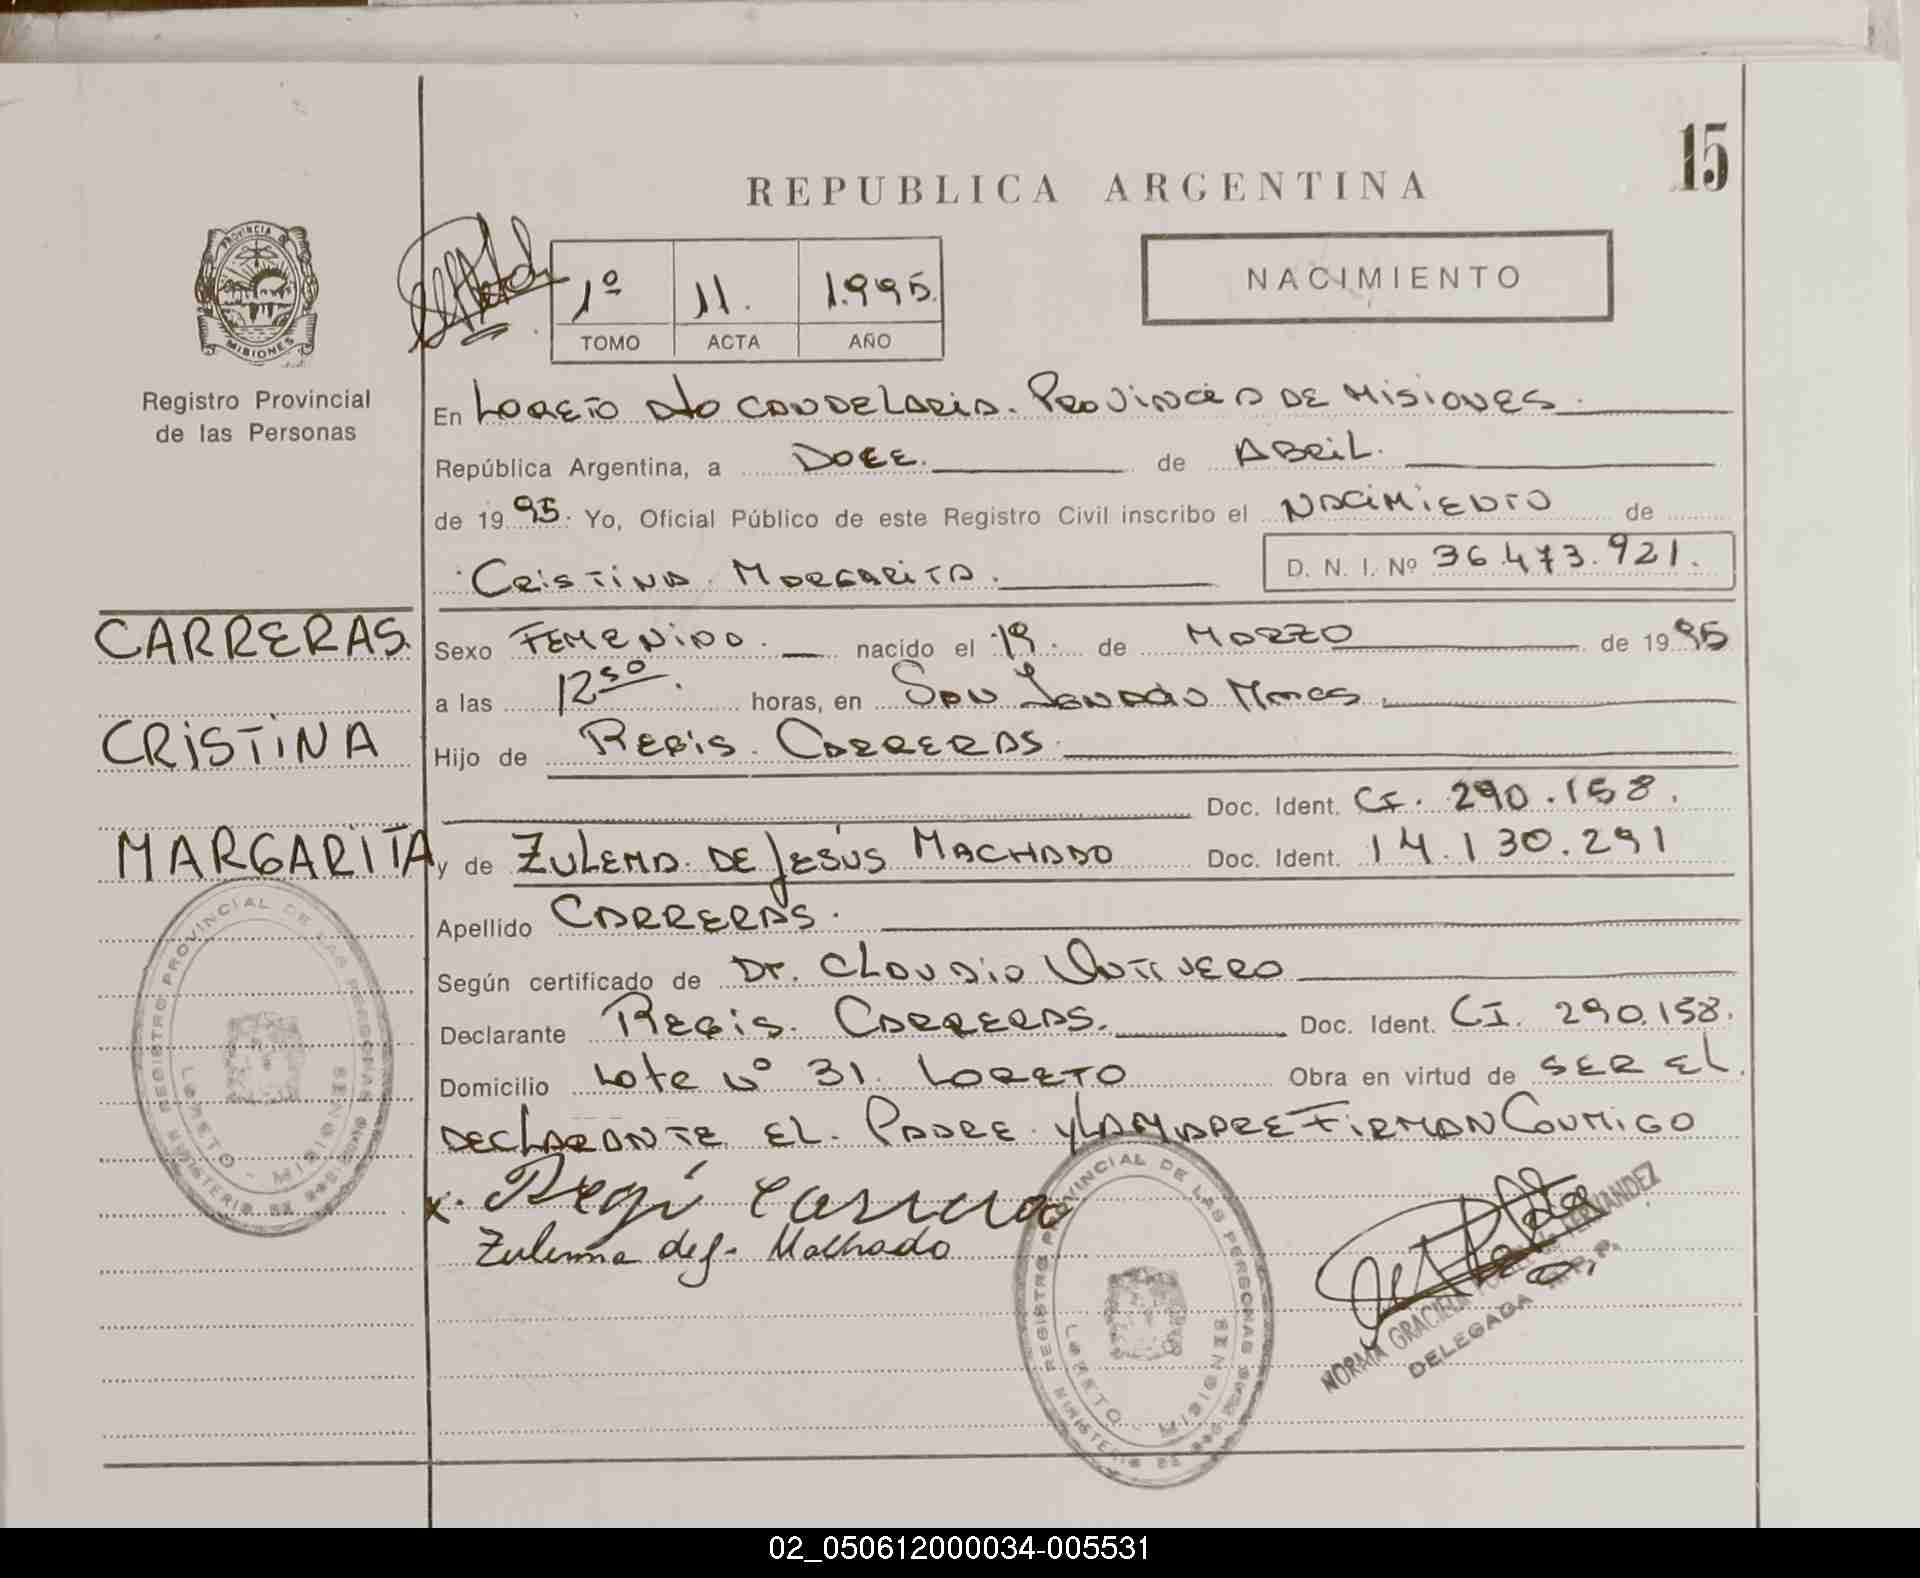 15
REPUBLICA ARGENTINA
PROVINCIA DE
MISIONES
Registro Provincial
de las Personas
1º 11. 1.995.
TOMO ACTA AÑO
NACIMIENTO
En LORETO Dto CANDELARIA. PROVINCIA DE MISIONES.
República Argentina, a DOCE. de ABRIL.
de 1995. Yo, Oficial Público de este Registro Civil inscribo el NACIMIENTO de
CRISTINA MARGARITA. D. N. I. Nº 36.473.921.
CARRERAS.
CRISTINA
MARGARITA
Sexo FEMENINO. nacido el 19. de MARZO de 1995
a las 12 50. horas, en SAN IGNACIO Mnes.
Hijo de REGIS. CARRERAS.
Doc. Ident. CI. 290.158.
y de ZULEMA. DE JESÚS MACHADO Doc. Ident. 14.130.291
Apellido CARRERAS.
Según certificado de Dr. CLAUDIO
Declarante REGIS. CARRERAS. Doc. Ident. CI. 290.158.
Domicilio Lote Nº 31. LORETO Obra en virtud de SER EL
DECLARANTE EL. PADRE Y LA MADRE FIRMAN CONMIGO
x. Regi Carrera
Zulema de J. Machado
REGISTRO PROVINCIAL DE LAS PERSONAS
LORETO - MISIONES
REGISTRO PROVINCIAL DE LAS PERSONAS
LORETO - MISIONES
NORMA GRACIELA FERNANDEZ
DELEGADA R. P. P.
02_050612000034-005531